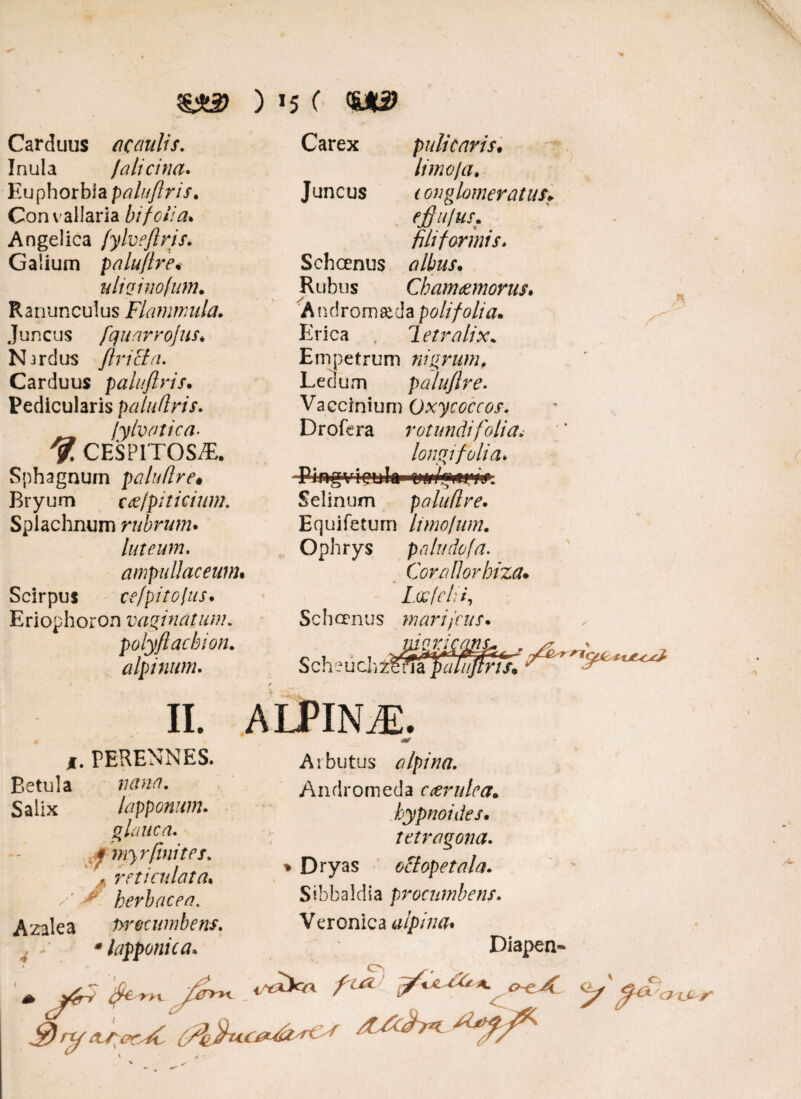 ) 15 (
Carduus acaulis.
Inula ſalicina.
Euphorbia paluſtris.
Convallaria bifolia.
Angelica ſylveſtris.
Galium paluſtre.
uliginoſum.
Ranunculus Flammula.
Juncus ſquarroſus.
Nardus ſtricta.
Carduus paluſtris.
Pedicularis paluſtris.
ſylvatica.
7. CESPITOSÆ.
Sphagnum paluſtre.
Bryum cæſpiticium.
Splachnum rubrum.
luteum.
ampullaceum.
Scirpus ceſpitoſus.
Eriophoron vaginatum.
polyſtachion.
alpinum.
Carex pulicaris.
limoſa.
Juncus conglomeratus.
effuſus.
filiformis.
Schœnus albus.
Rubus Chamæmorus.
Andromæda polifolia.
Erica Tetralix.
Empetrum nigrum.
Ledum paluſtre.
Vaccinium Oxycoccos.
Droſera rotundifolia.
longifolia.
Pingvicula vulgaris.
Selinum paluſtre.
Equiſetum limoſum.
Ophrys paludoſa.
Corallorhiza.
Lœſelii,
Schœnus mariſcus.
nigricans.
Scheuchzeria paluſtris.
II. ALPINÆ.
1. PERENNES.
Betula nana.
Salix lapponum.
glauca.
myrſinites.
reticulata.
herbacea.
Azalea procumbens.
* lapponica.
Arbutus alpina.
Andromeda cærulea.
hypnoides.
tetragona.
* Dryas octopetala.
Sibbaldia procumbens.
Veronica alpina.
Diapen-